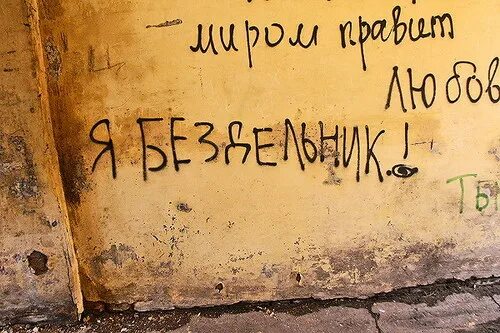 миром правит
любов
Я БЕЗДЕЛЬНИК.!
Ты